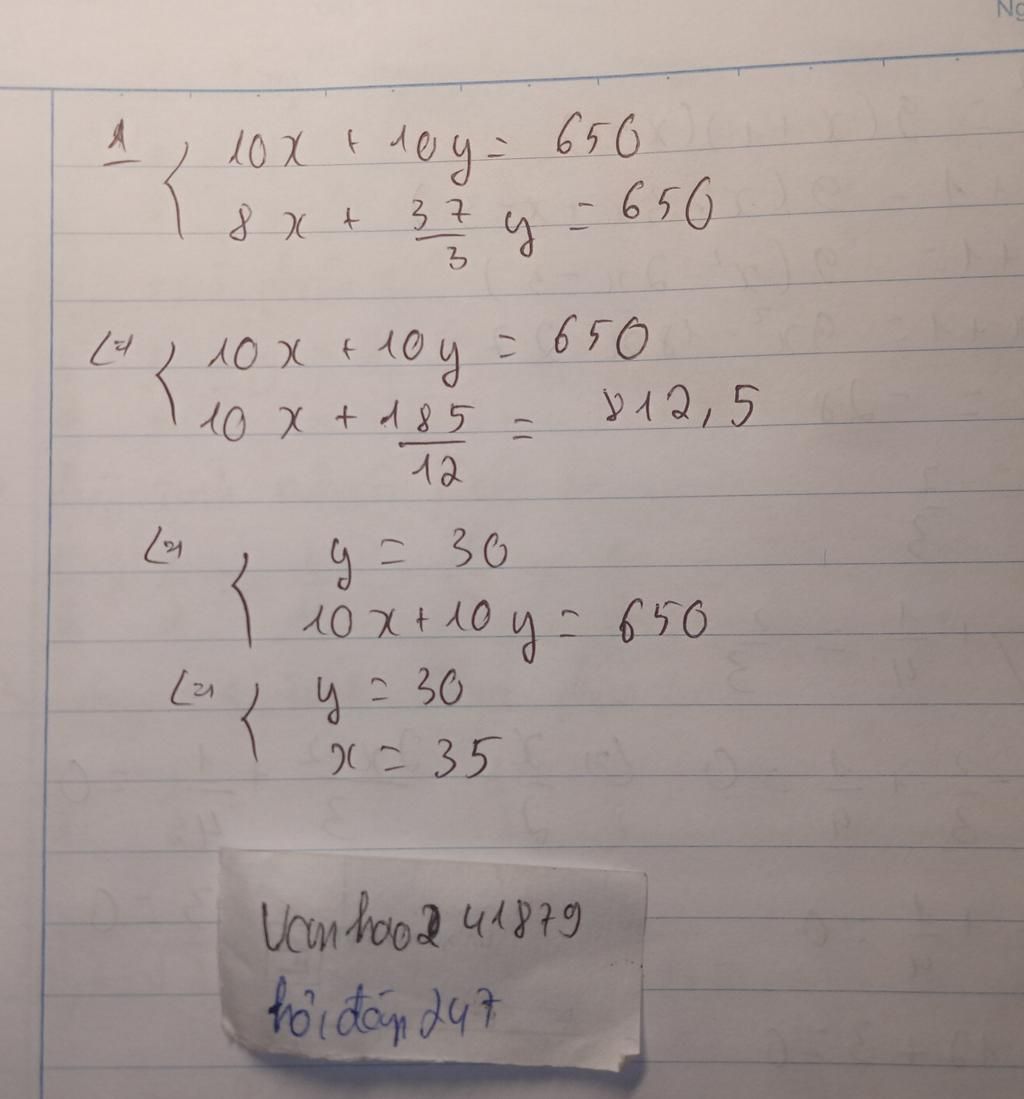 Ng
1 { 10x + 10y = 650
8x + 37/3 y = 650
<=> { 10x + 10y = 650
10x + 185/12 = 812,5
<=> { y = 30
10x + 10y = 650
<=> { y = 30
x = 35
Vanhao2 41879
hỏi đáp 247